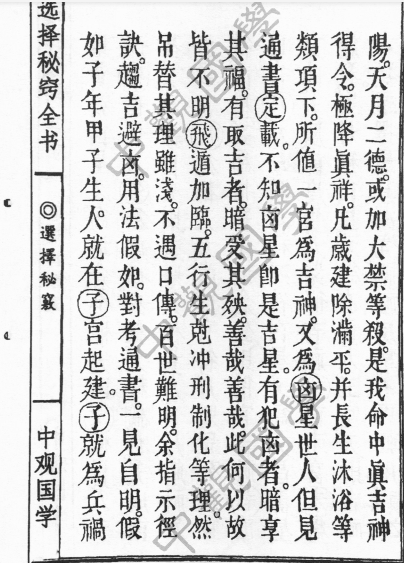 陽。天月二德。或加大禁等殺。是我命中眞吉神
得令。極降眞祥。凡歲建除滿平。并長生沐浴等
類項下。所值一宮為吉神。又為凶星。世人但見
通書定載。不知凶星即是吉星。有犯凶者。暗享
其福。有取吉者。暗受其殃。善哉善哉。此何以故
皆不明飛遁加臨。五行生尅冲刑制化等理。然
吊替其理雖淺。不遇口傳。百世難明。余指示徑
訣。趨吉避凶。用法假如。對考通書。一見自明。假
如子年甲子生人。就在子宮起建。子就為兵禍
选择秘窍全书
◎選擇秘竅
中观国学
中觀國學
中觀國學